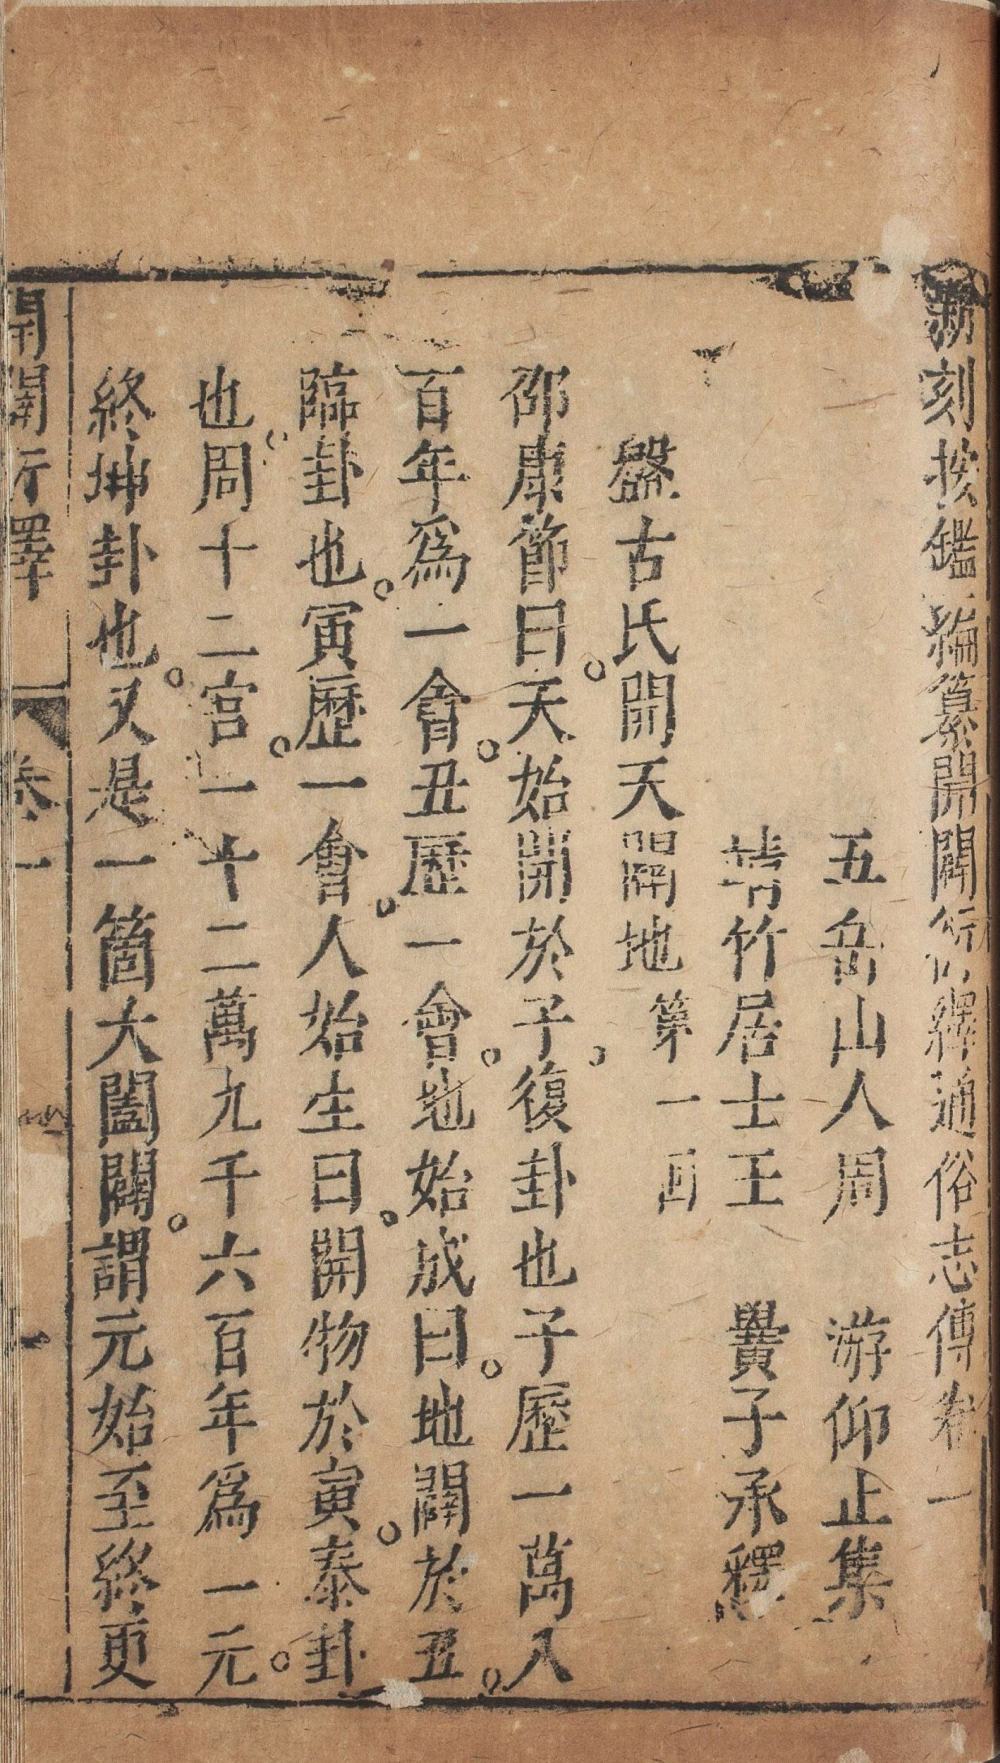 新刻按鑑編纂開闢衍繹通俗志傳卷一
五岳山人周　游仰止集
靖竹居士王　黌子承釋
盤古氏開天闢地　第一回
邵康節曰。天始開於子。復卦也子歷一萬八
百年爲一會。丑歷一會。地始成曰。地闢於丑。
臨卦也。寅歷一會。人始生曰。開物於寅。泰卦
也。周十二宮。一十二萬九千六百年爲一元。
終坤卦也。又是一箇大闔闢。謂元始至終更
開闢衍繹
卷一